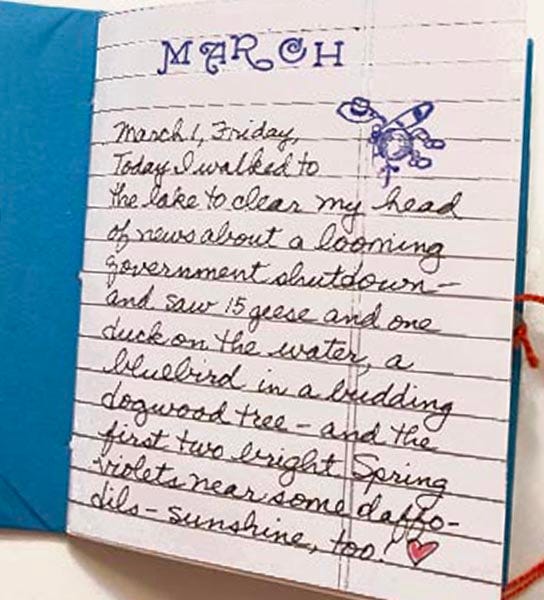 MARCH
March 1, Friday,
Today I walked to
the lake to clear my head
of news about a looming
government shutdown-
and saw 15 geese and one
duck on the water, a
bluebird in a budding
dogwood tree - and the
first two bright Spring
violets near some daffo-
dils - sunshine, too!